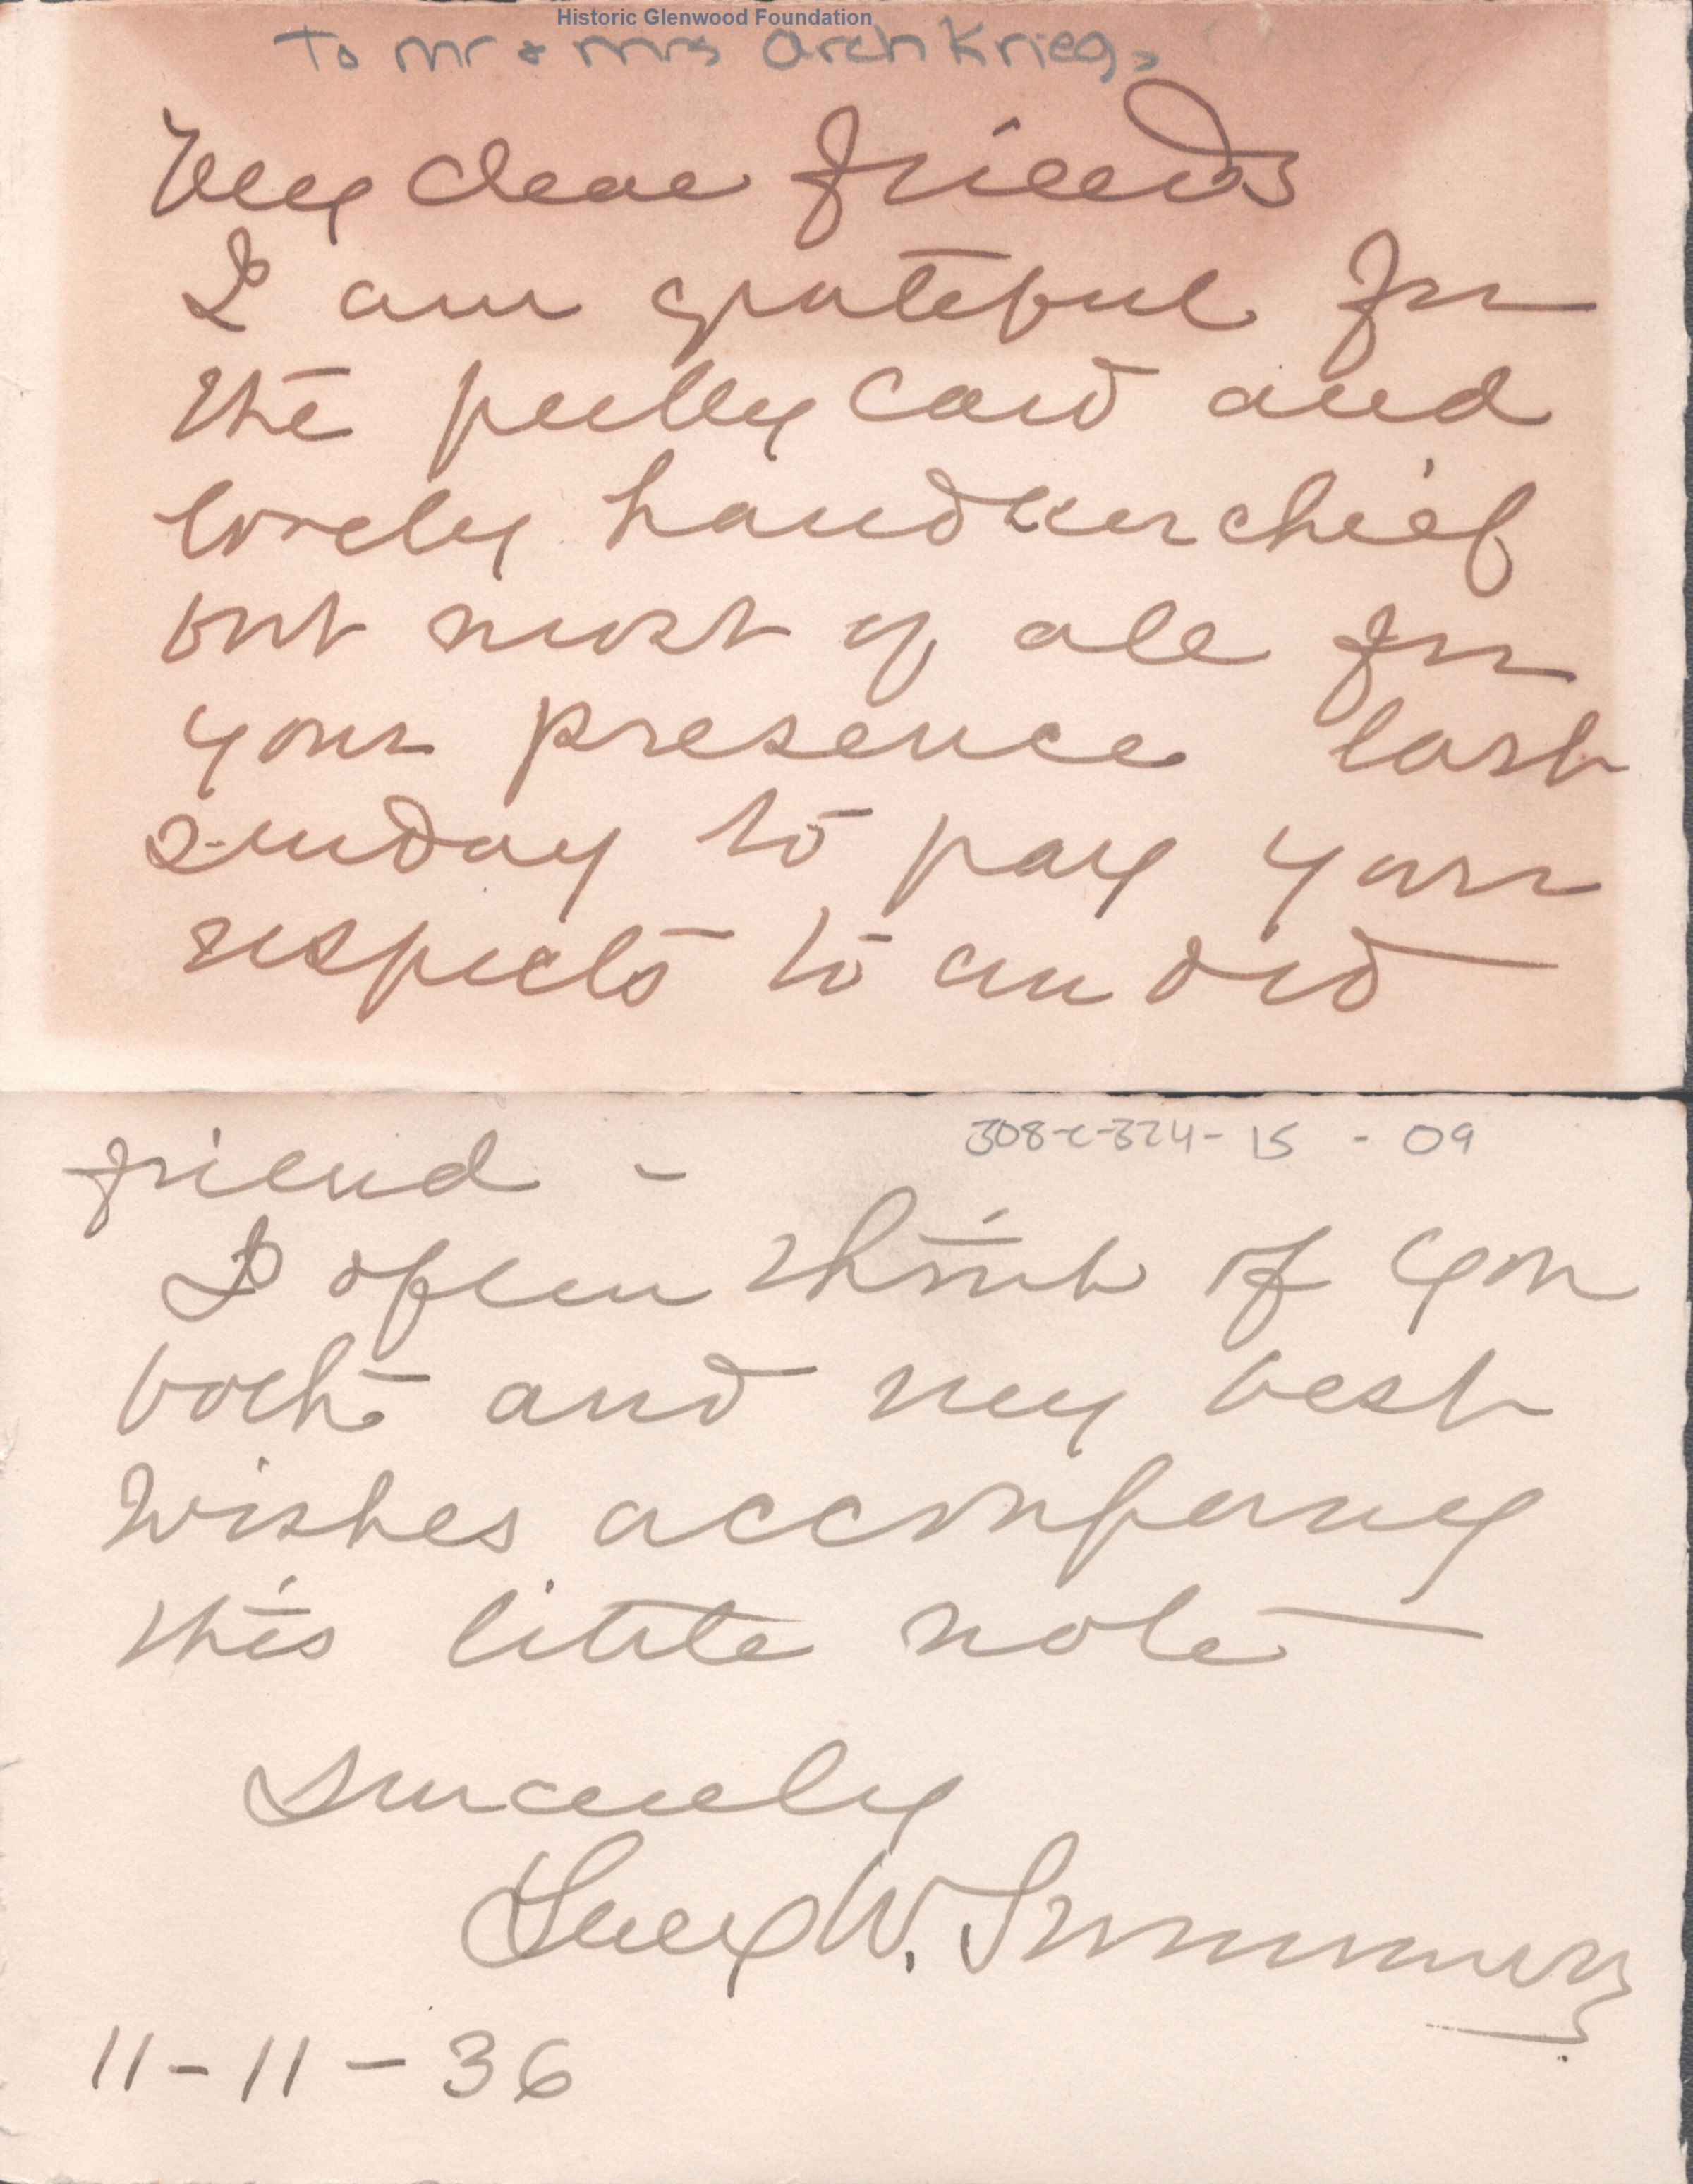 Historic Glenwood Foundation
To Mr & Mrs Arch Krieg,
Very dear friends
I am grateful for
the pretty card and
lovely handkerchief
but most of all for
your presence last
sunday to pay your
respects to an old
friend -
308-C-324-15 - 09
I often think of you
both and my best
wishes accompany
this little note
Sincerely
Lucy W.
11-11-36